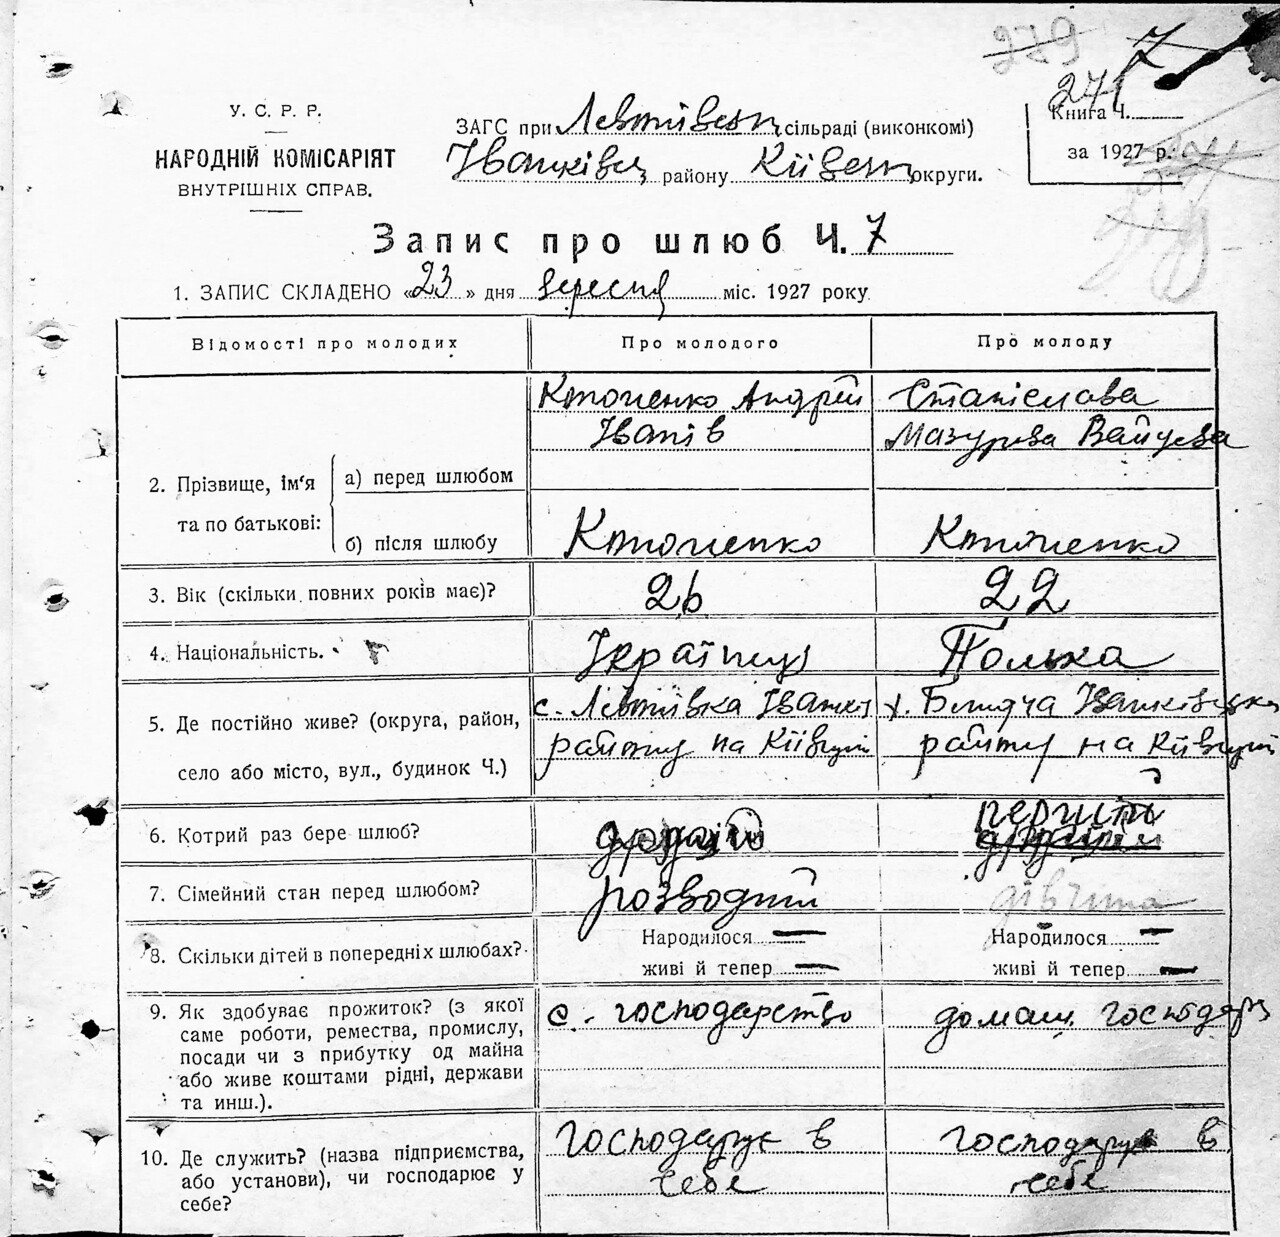 279 7
271
У. С. Р. Р.
НАРОДНІЙ КОМІСАРІЯТ
ВНУТРІШНІХ СПРАВ.
ЗАГС при сільраді (виконкомі)
району округи.
Книга Ч.
за 1927 р.
Запис про шлюб Ч. 7
1. ЗАПИС СКЛАДЕНО «23» дня вересня міс. 1927 року
Відомості про молодих Про молодого Про молоду
2. Прізвище, ім'я та по батькові:
а) перед шлюбом
Андрій Іванів
Станіслава
б) після шлюбу
3. Вік (скільки повних років має)? 26 22
4. Національність. Українець Полька
5. Де постійно живе? (округа, район,
село або місто, вул., будинок Ч.)
с. Левківка
району на Київщині
району на Київщині
6. Котрий раз бере шлюб? другий перший
7. Сімейний стан перед шлюбом? розводний дівчина
8. Скільки дітей в попередніх шлюбах? Народилося — Народилося —
живі й тепер — живі й тепер —
9. Як здобуває прожиток? (з якої
саме роботи, ремества, промислу,
посади чи з прибутку од майна
або живе коштами рідні, держави
та инш.).
с. господарство
домаш. господар
10. Де служить? (назва підприємства,
або установи), чи господарює у
себе?
господарує в
себе
господарує в
себе